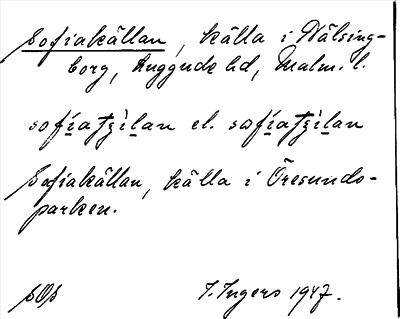 Sofiakällan, källa i Hälsing-
borg, Luggude hd, Malm. l.
sofiatʒ̀ilan el. sɷfiatʒ̀ilan
Sofiakällan, källa i Öresunds-
parken.
SOS I. Ingers 1947.